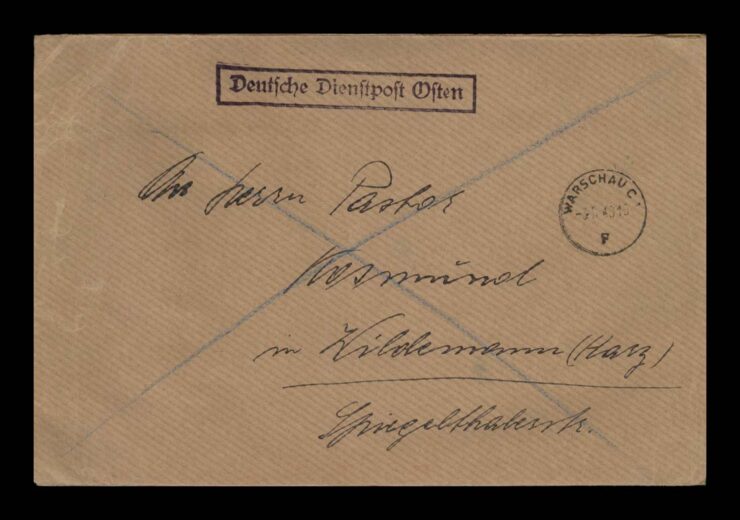 Deutsche Dienstpost Osten
WARSCHAU C 1
F
An Herrn Pastor
in Wildemann (Harz)
Spiegelthalerstr.